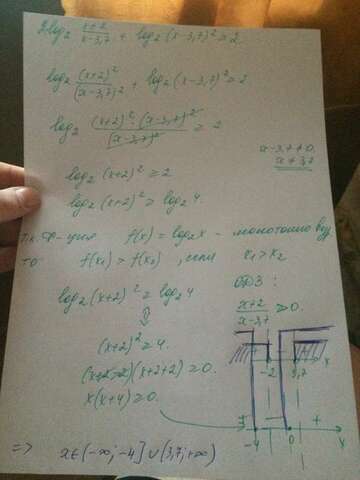 2log₂ (x+2)/(x-3,7) + log₂(x-3,7)² ≥ 2
log₂ (x+2)²/(x-3,7)² + log₂(x-3,7)² ≥ 2
log₂ (x+2)²·(x-3,7)²/(x-3,7)² ≥ 2
x-3,7≠0
x≠3,7
log₂(x+2)² ≥ 2
log₂(x+2)² ≥ log₂4
т.к. ф-ция f(x) = log₂x - монотонно возр
то f(x₁) > f(x₂), если x₁ > x₂
log₂(x+2)² ≥ log₂4
⇕
(x+2)² ≥ 4
(x+2-2)(x+2+2) ≥ 0
x(x+4) ≥ 0
ОДЗ:
(x+2)/(x-3,7) > 0
-2 3,7 x
+ - +
-4 0 x
=> x∈(-∞;-4]∪(3,7;+∞)